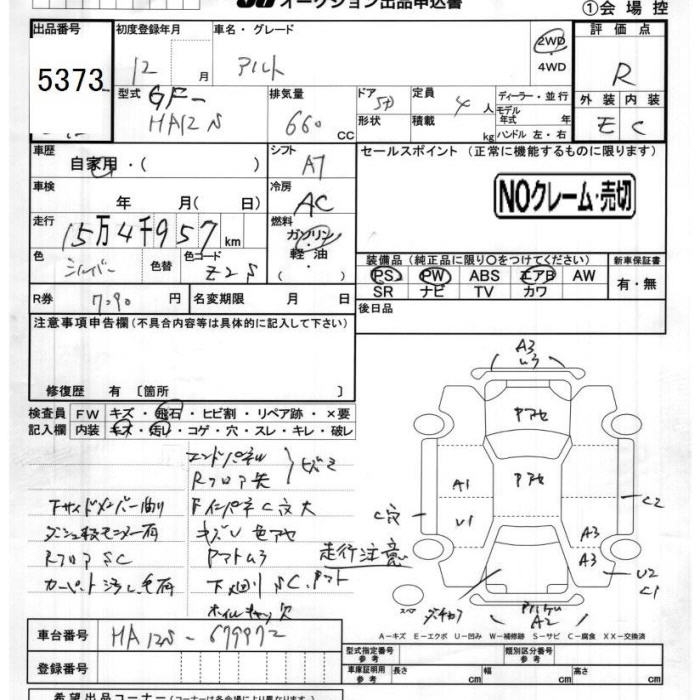 オークション出品申込書
①会場控
出品番号 初度登録年月 車名・グレード 2WD 4WD 評価点
5373 12 月 アルト R
型式 GF- HA12S 排気量 660 CC ドア 5D 形状 定員 4人 積載 kg ディーラー・並行 モデル年式 年 ハンドル 左・右 外装 内装
E C
車歴 自家用・( ) シフト AT セールスポイント (正常に機能するものに限ります)
車検 年 月( 日) 冷房 AC NOクレーム・売切
走行 15万4千957 km 燃料 ガソリン・軽油・( )
色 シルバー 色替 色コード Z2S
装備品(純正品に限り〇をつけてください) 新車保証書
PS PW ABS エアB AW 有・無
SR ナビ TV カワ
R券 7090 円 名変期限 月 日 後日品
注意事項申告欄(不具合内容等は具体的に記入して下さい)
修復歴 有 〔箇所 〕
検査員 FW キズ・飛石・ヒビ割・リペア跡・×要
記入欄 内装 キズ・汚し・コゲ・穴・スレ・キレ・破レ
エンドパネル
Rフロア
下サイドメンバー曲り インパネ C穴大
ダッシュ 有 キズU 色アセ
RフロアSC Pマトムラ 走行注意
カーペット汚し 下廻りSC.Pマト
ホイルキャップ欠
A3
ムラ
Pアセ
Pアセ
A1
U1
C穴
C2
A3
A3
U2
C1
スペア
A2
A-キズ E-エクボ U-凹み W-補修跡 S-サビ C-腐食 XX-交換済
車台番号 HA12S-679972
型式指定番号 参考 類別区分番号 参考
登録番号 車庫証明用 参考 長さ cm 幅 cm 高さ cm
希望出品コーナー(コーナーは各会場により異なります)